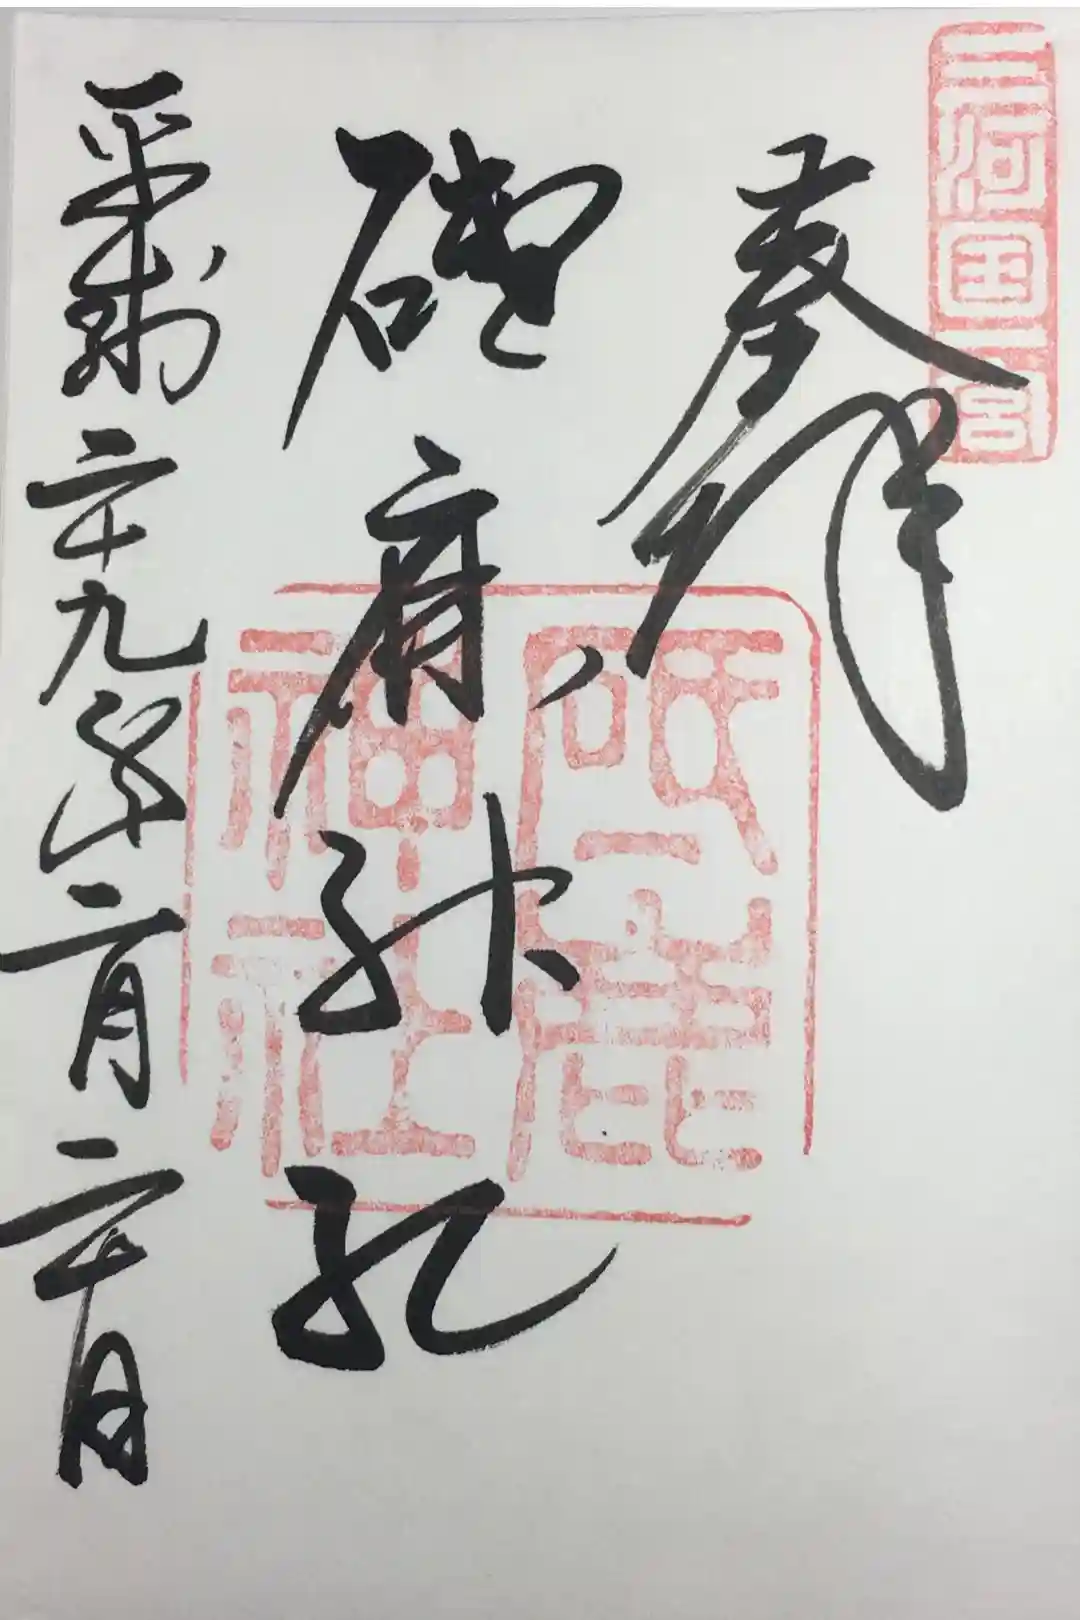 三河国一宮
奉拝
砥鹿神社
砥鹿神社
平成二十九年二月二十日